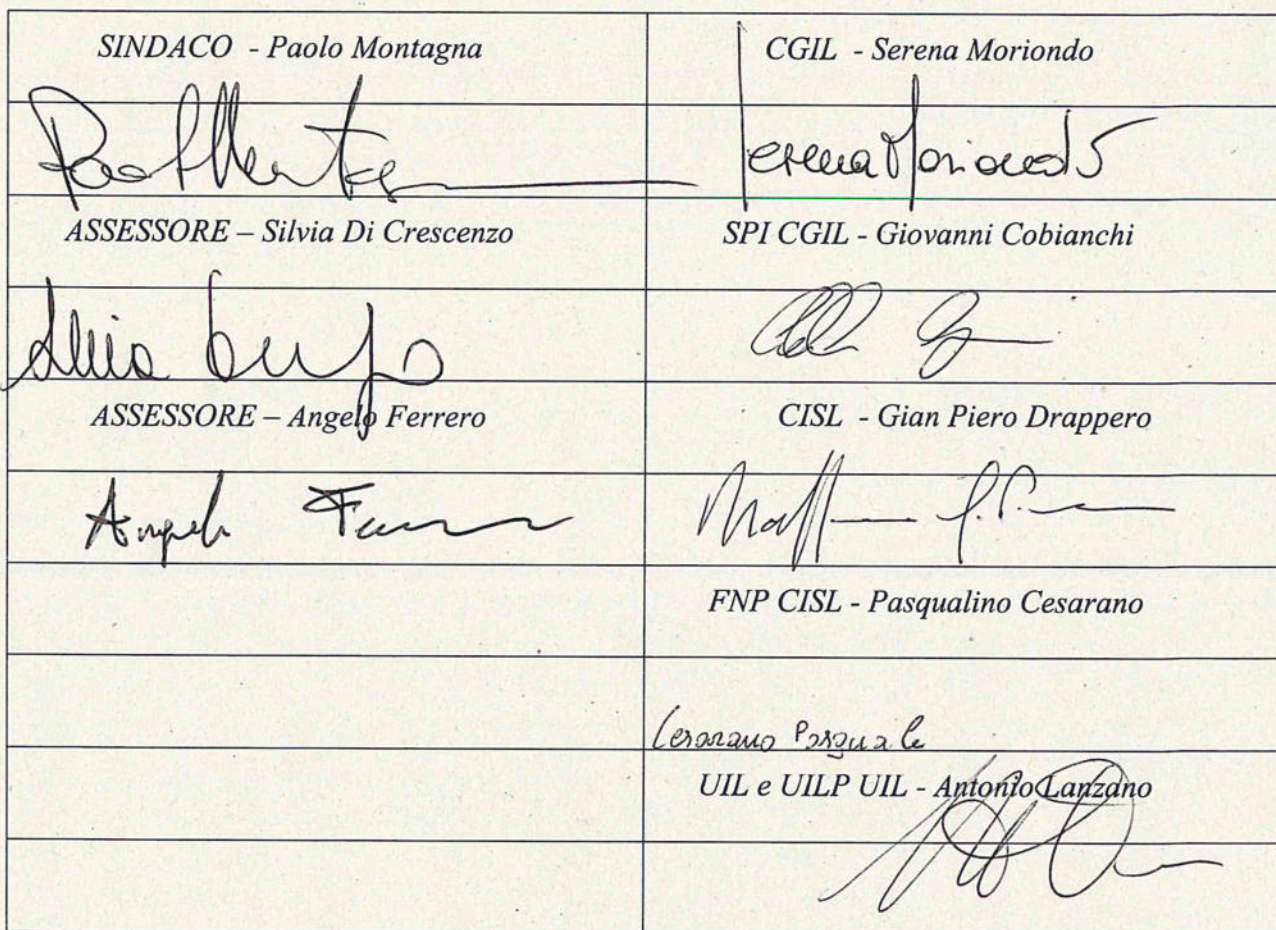 SINDACO - Paolo Montagna
ASSESSORE – Silvia Di Crescenzo
ASSESSORE – Angelo Ferrero
Angelo
CGIL - Serena Moriondo
Serena Moriondo
SPI CGIL - Giovanni Cobianchi
CISL - Gian Piero Drappero
FNP CISL - Pasqualino Cesarano
Cesarano Pasquale
UIL e UILP UIL - Antonio Lanzano